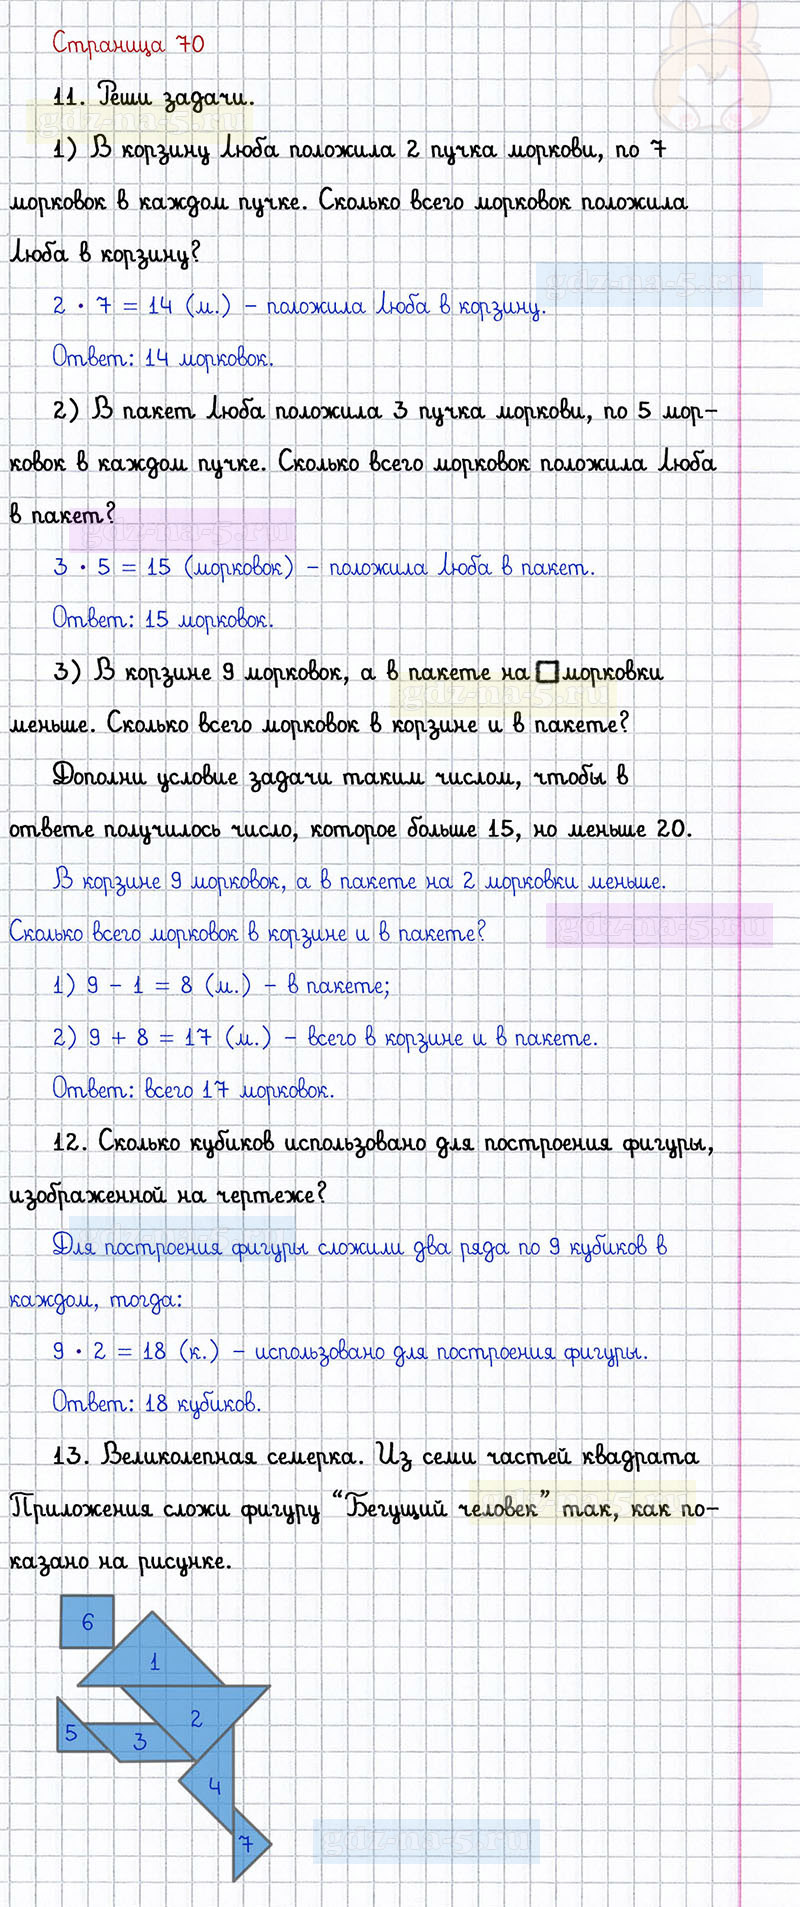 Страница 70
11. Реши задачи.
gdz-na-5.ru
1) В корзину Люба положила 2 пучка моркови, по 7
морковок в каждом пучке. Сколько всего морковок положила
Люба в корзину?
gdz-na-5.ru
2 · 7 = 14 (м.) – положила Люба в корзину.
Ответ: 14 морковок.
2) В пакет Люба положила 3 пучка моркови, по 5 мор-
ковок в каждом пучке. Сколько всего морковок положила Люба
в пакет?
gdz-na-5.ru
3 · 5 = 15 (морковок) – положила Люба в пакет.
Ответ: 15 морковок.
3) В корзине 9 морковок, а в пакете на □ морковки
gdz-na-5.ru
меньше. Сколько всего морковок в корзине и в пакете?
Дополни условие задачи таким числом, чтобы в
ответе получилось число, которое больше 15, но меньше 20.
В корзине 9 морковок, а в пакете на 2 морковки меньше.
Сколько всего морковок в корзине и в пакете?
gdz-na-5.ru
1) 9 – 1 = 8 (м.) – в пакете;
2) 9 + 8 = 17 (м.) – всего в корзине и в пакете.
Ответ: всего 17 морковок.
12. Сколько кубиков использовано для построения фигуры,
изображенной на чертеже?
gdz-na-5.ru
Для построения фигуры сложили два ряда по 9 кубиков в
каждом, тогда:
9 · 2 = 18 (к.) – использовано для построения фигуры.
Ответ: 18 кубиков.
13. Великолепная семерка. Из семи частей квадрата
gdz-na-5.ru
Приложения сложи фигуру “Бегущий человек” так, как по-
казано на рисунке.
6
1
2
5
3
4
7
gdz-na-5.ru